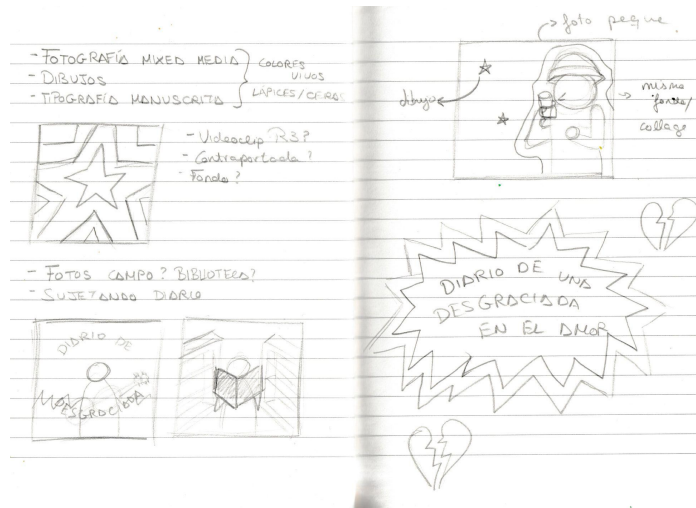 - FOTOGRAFÍA MIXED MEDIA
- DIBUJOS
- TIPOGRAFÍA MANUSCRITA
COLORES
VIVOS
LÁPICES/CERAS
- Videoclip R3?
- Contraportada?
- Fondo?
- FOTOS CAMPO? BIBLIOTECA?
- SUJETANDO DIARIO
DIARIO DE
DESGRACIADA
foto peque
dibujo
misma
collage
DIARIO DE UNA
DESGRACIADA
EN EL AMOR